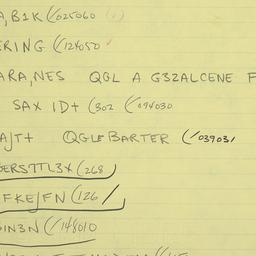 A, B1K (/025060
ERING (/124050
ARA,NES QGL A G3ZALCENE F
SAX ID+ (302 (/094030
A/T+ QGLF BARTER (/039031
BERS9TL3X (268)
FKE/FN (126/
IN3N (/148010